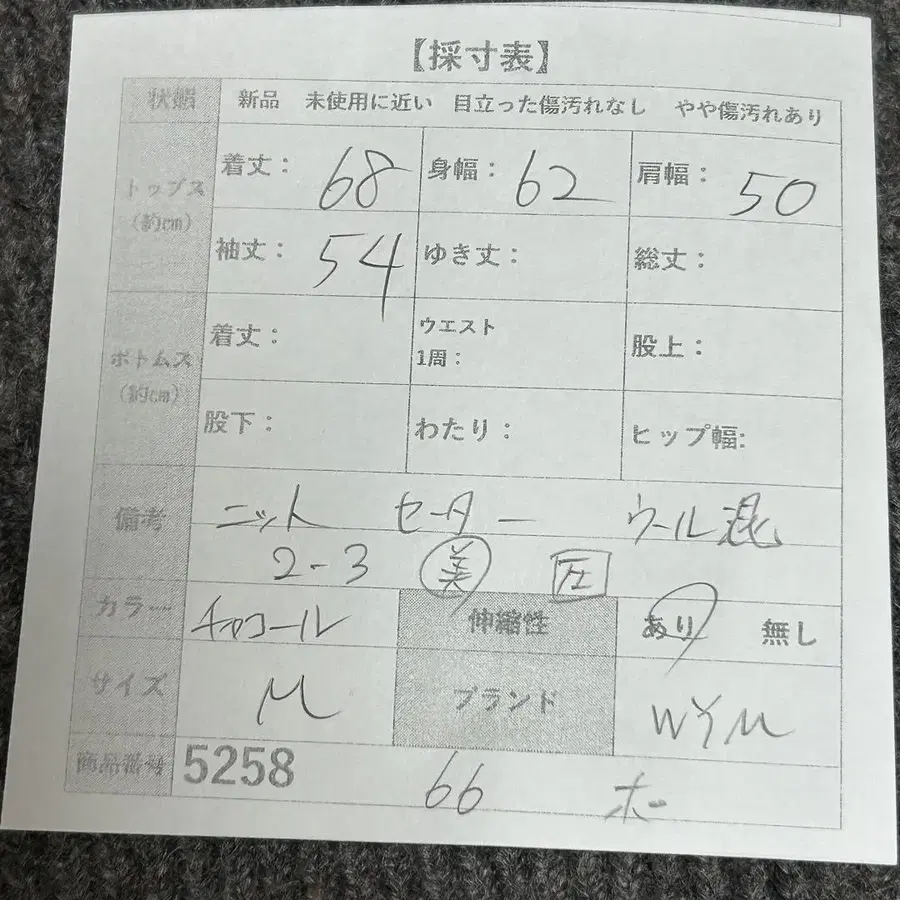 【採寸表】
状態 新品 未使用に近い 目立った傷汚れなし やや傷汚れあり
トップス (約cm)
着丈: 68 身幅: 62 肩幅: 50
袖丈: 54 ゆき丈: 総丈:
ボトムス (約cm)
着丈: ウエスト1周: 股上:
股下: わたり: ヒップ幅:
備考 ニット セーター ウール混
2-3 美 圧
カラー チャコール 伸縮性 あり 無し
サイズ M ブランド WYM
商品番号 5258 66 ホー